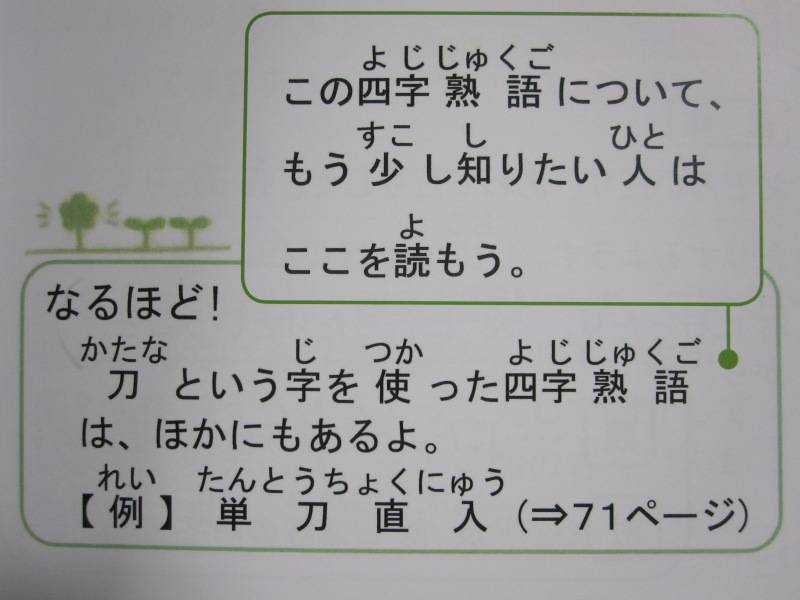 よじじゅくご
この四字熟語について、
すこ し ひと
もう少し知りたい人は
よ
ここを読もう。
なるほど！
かたな じ つか よじじゅくご
刀という字を使った四字熟語
は、ほかにもあるよ。
れい たんとうちょくにゅう
【例】 単刀直入（⇒71ページ）